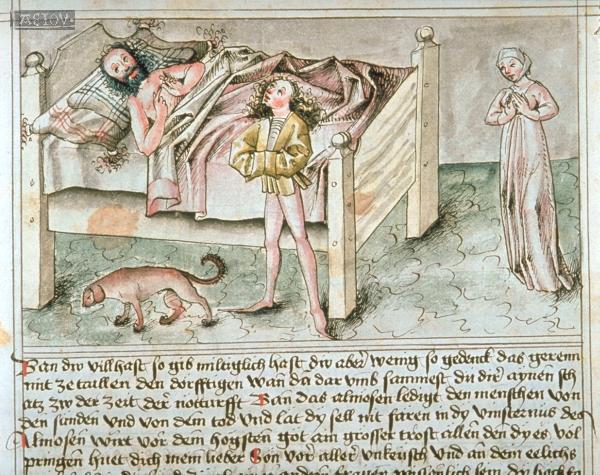 AEIOV
San div vill hast so gib miltiglich hast div aber wenig so gedenck das gerenn
mit ze taillen den dörfftigen wan da dar vmb sammest du dir aynen sch
atz zw der zeit der notturfft San das almosen ledigt den menschen von
den sunden vnd von dem tod vnd lat dy sell nit faren in dy vinsternus des
Almosen wirt vor dem hogsten got am grosser trost allen den dy es vol
pringen huet dich mein lieber Son vor aller vnkeusch vnd an dem eelichs